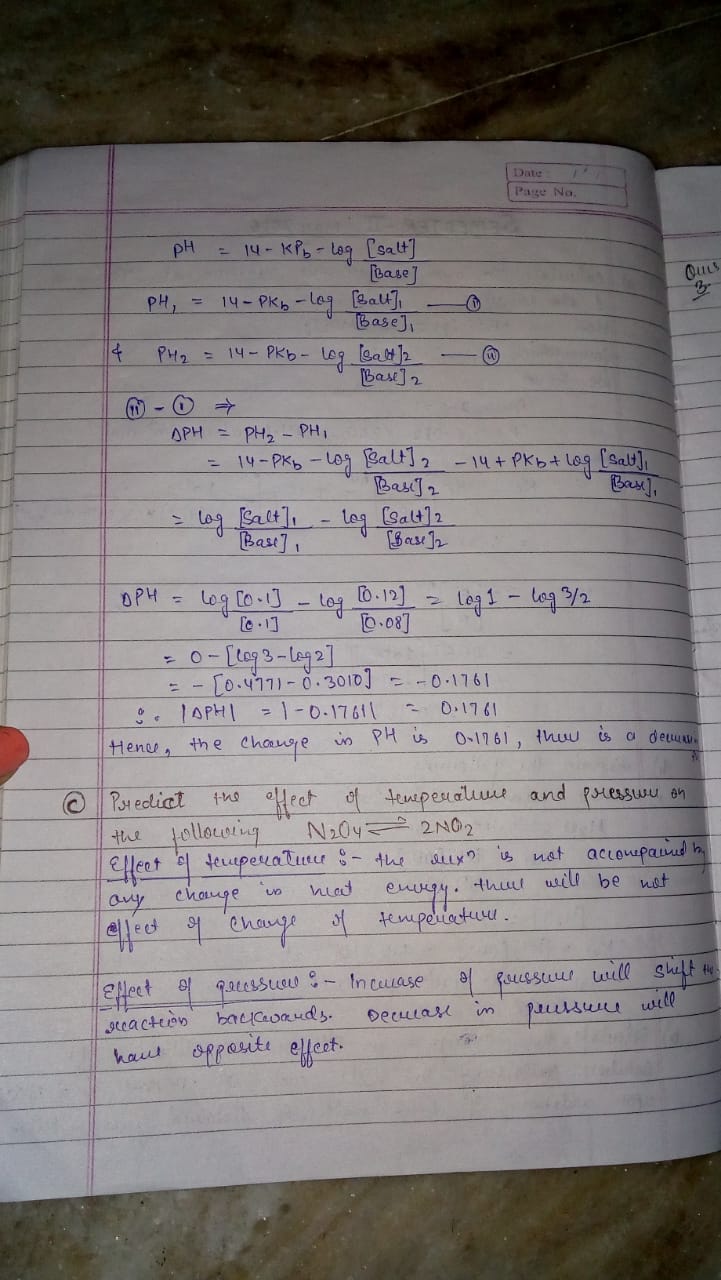 Date / /
Page No.
Ques
3
pH = 14 - KPb - log [salt]/[Base]
PH1 = 14 - PKb - log [Salt]1/[Base]1 — (i)
& PH2 = 14 - PKb - log [Salt]2/[Base]2 — (ii)
(ii) - (i) ⇒
ΔPH = PH2 - PH1
= 14 - PKb - log [Salt]2/[Base]2 - 14 + PKb + log [Salt]1/[Base]1
= log [Salt]1/[Base]1 - log [Salt]2/[Base]2
ΔPH = log [0.1]/[0.1] - log [0.12]/[0.08] = log 1 - log 3/2
= 0 - [log 3 - log 2]
= - [0.4771 - 0.3010] = -0.1761
∴ |ΔPH| = |-0.1761| = 0.1761
Hence, the change in PH is 0.1761, there is a
(C) Predict the effect of temperature and pressure on
the following N2O4 ⇌ 2NO2
Effect of temperature :- the rexn is not accompained by
any change in heat energy. there will be not
effect of change of temperature.
Effect of pressure :- Increase of pressure will shift the
reaction backwards. Decrease in pressure will
have opposite effect.